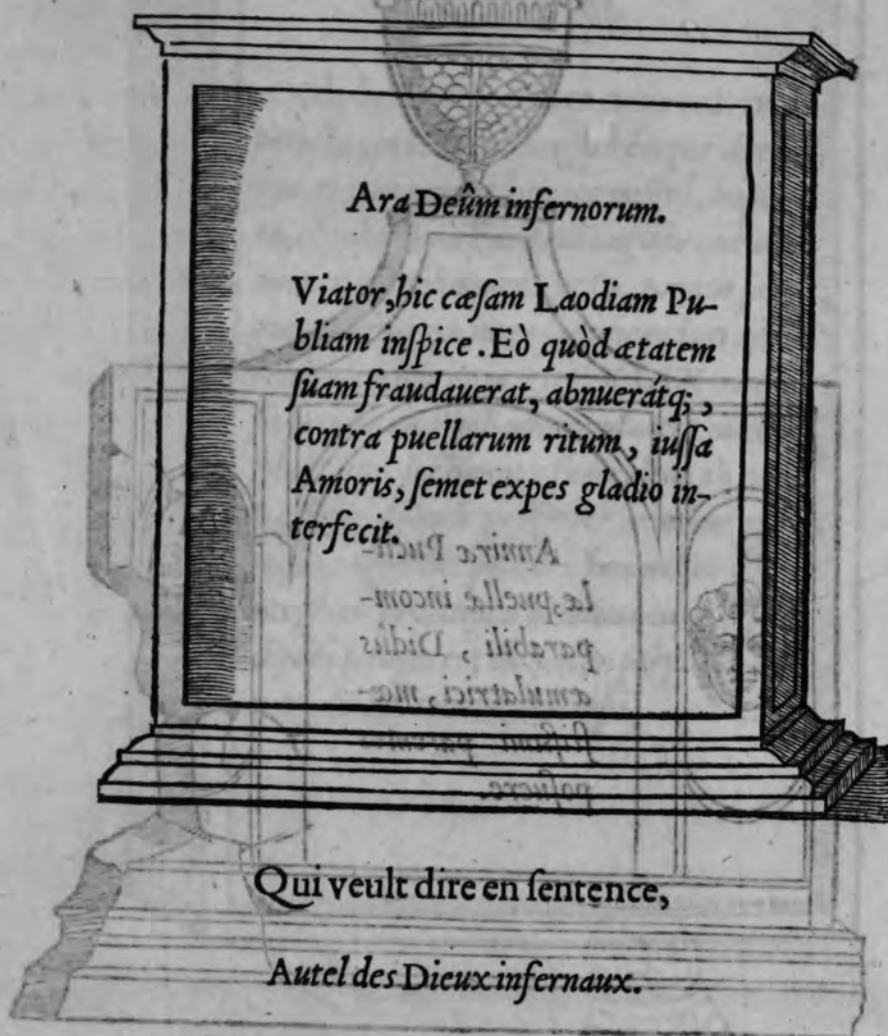 Ara Deûm infernorum.
Viator, hic cæſam Laodiam Pu-
bliam inſpice. Eò quòd ætatem
ſuam fraudauerat, abnuerátq; ,
contra puellarum ritum, iuſſa
Amoris, ſemet expes gladio in-
terfecit.
Qui veult dire en ſentence,
Autel des Dieux infernaux.